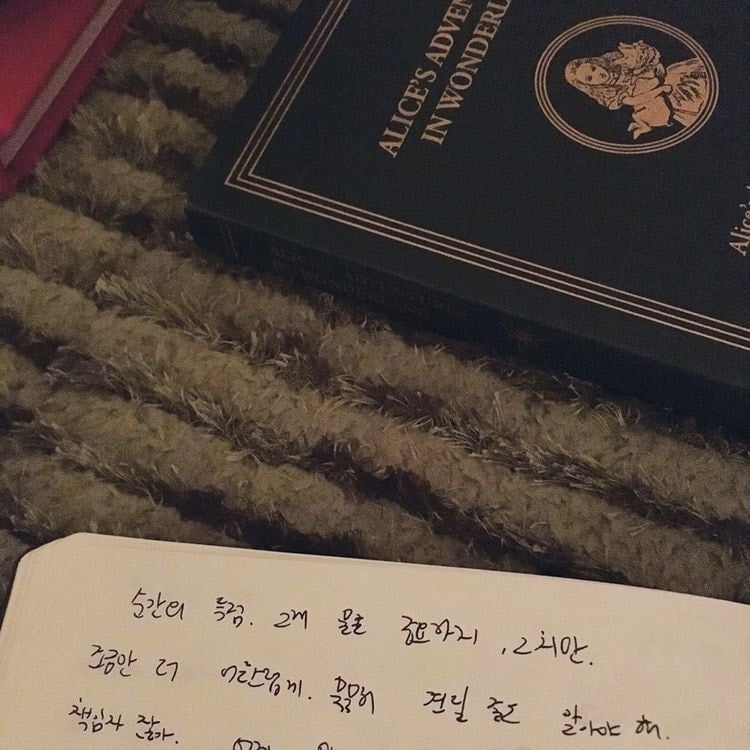 ALICE'S ADVEN
IN WONDERL
Alice's
ALICE'S ADVENTURES
IN WONDERLAND
순간의 특검. 그게 물론 중요하지, 그치만.
조금만 더 어른답게. 묵묵히 견딜 줄도 알아야 해.
책임자 잖아.